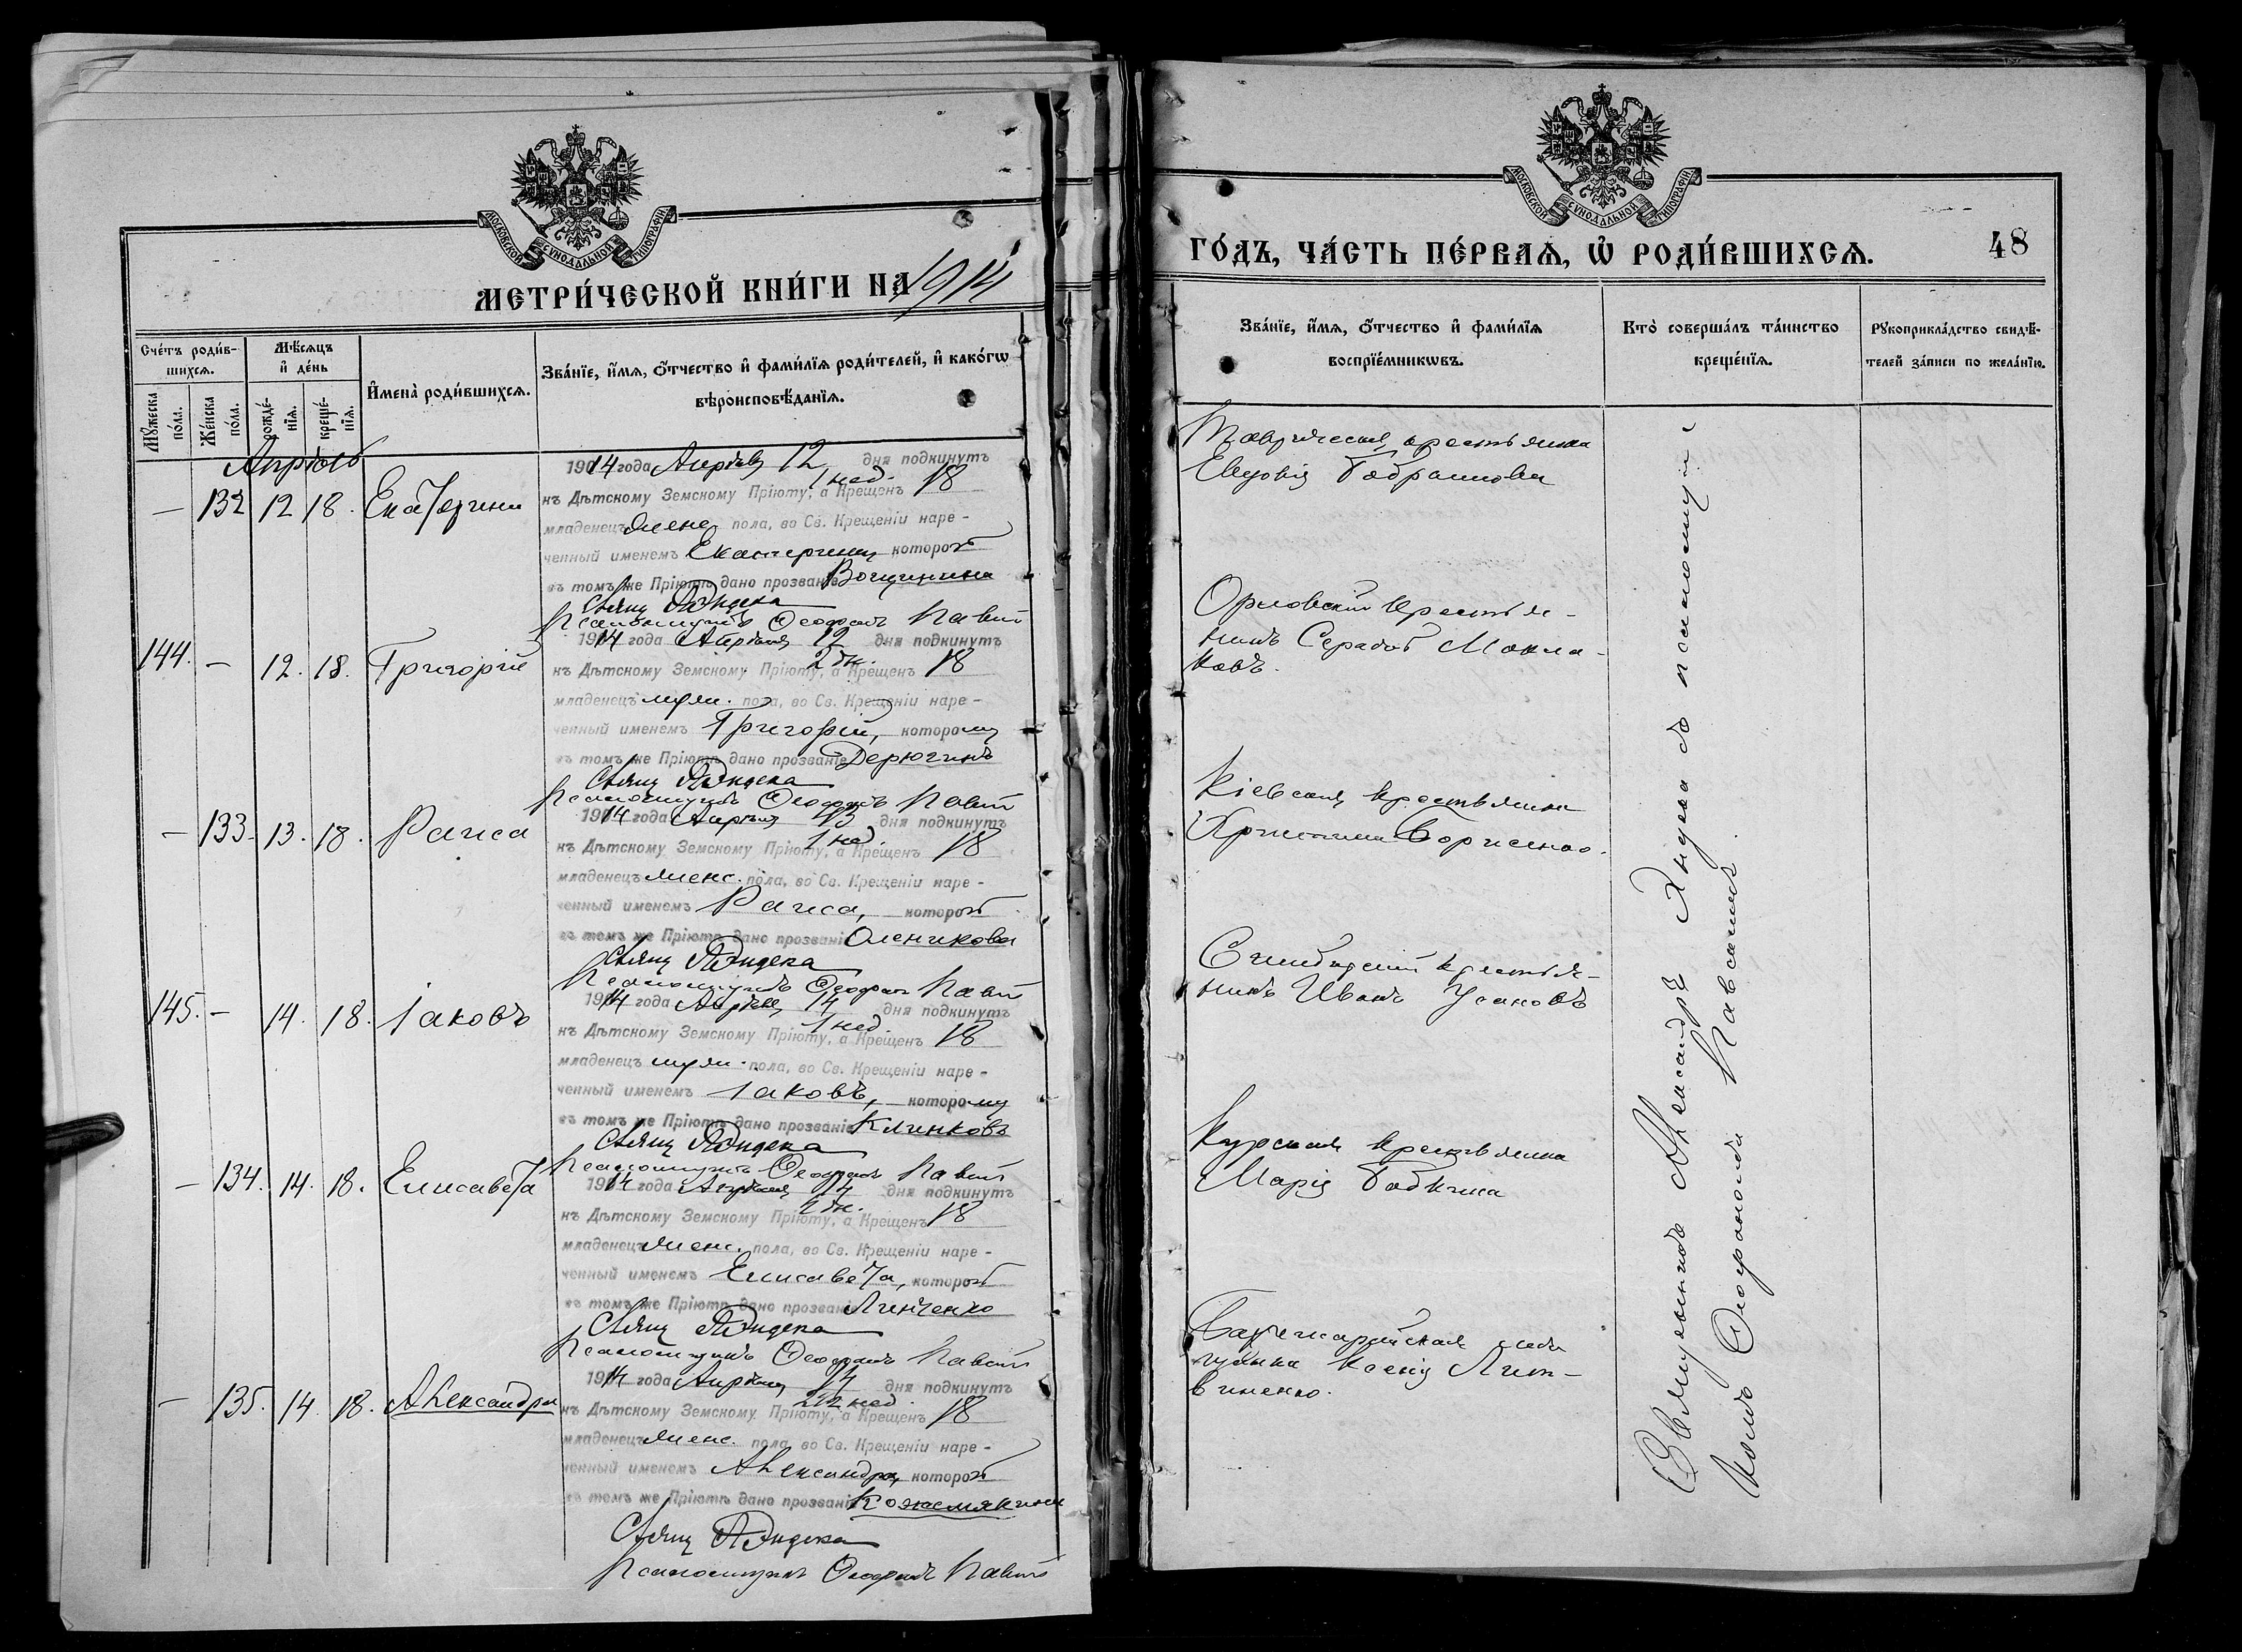 МОСКОВСКОЙ СѴНОДАЛЬНОЙ ТИПОГРАФІИ
МЕТРИ́ЧЕСКОЙ КНИ́ГИ НА 1914
Сче́тъ роди́в-
шихсѧ.
Мѣ́сѧцъ
и҆ де́нь
Мꙋ́жеска
по́ла.
Же́нска
по́ла.
рожде́-
нїѧ.
креще́-
нїѧ.
И҆мена̀ роди́вшихсѧ.
Зва́нїе, и҆́мѧ, ѻ҆́тчество и҆ фами́лїѧ роди́телей, и҆ како́гѡ
вѣроисповѣ́данїѧ.
Апрѣль
— 132 12 18. Екатерина
1914 года Апрѣля 12 дня подкинутъ
1 нед.
къ Дѣтскому Земскому Пріюту, а Крещенъ 18
младенецъ женс. пола, во Св. Крещеніи наре-
ченный именемъ Екатерина, которой
въ томъ же Пріютѣ дано прозваніе
Свящ. А Яндека
Псаломщикъ Ѳеофанъ
144. — 12. 18. Григорій
1914 года Апрѣля 12 дня подкинутъ
2 дн.
къ Дѣтскому Земскому Пріюту, а Крещенъ 18
младенецъ муж. пола, во Св. Крещеніи наре-
ченный именемъ Григорій, которому
въ томъ же Пріютѣ дано прозваніе Дерюгинъ
Свящ. А Яндека
Псаломщикъ Ѳеофанъ
— 133. 13. 18. Раиса
1914 года Апрѣля 13 дня подкинутъ
1 нед.
къ Дѣтскому Земскому Пріюту, а Крещенъ 18
младенецъ женс. пола, во Св. Крещеніи наре-
ченный именемъ Раиса, которой
въ томъ же Пріютѣ дано прозваніе Оленикова
Свящ. А Яндека
Псаломщикъ Ѳеофанъ
145. — 14. 18. Іаковъ
1914 года Апрѣля 14 дня подкинутъ
1 нед.
къ Дѣтскому Земскому Пріюту, а Крещенъ 18
младенецъ муж. пола, во Св. Крещеніи наре-
ченный именемъ Іаковъ, которому
въ томъ же Пріютѣ дано прозваніе Клинковъ
Свящ. А Яндека
Псаломщикъ Ѳеофанъ
— 134. 14. 18. Елисавета
1914 года Апрѣля 14 дня подкинутъ
2 дн.
къ Дѣтскому Земскому Пріюту, а Крещенъ 18
младенецъ женс. пола, во Св. Крещеніи наре-
ченный именемъ Елисавета, которой
въ томъ же Пріютѣ дано прозваніе Линченко
Свящ. А Яндека
Псаломщикъ Ѳеофанъ
— 135. 14. 18. Александра
1914 года Апрѣля 14 дня подкинутъ
нед.
къ Дѣтскому Земскому Пріюту, а Крещенъ 18
младенецъ женс. пола, во Св. Крещеніи наре-
ченный именемъ Александра, которой
въ томъ же Пріютѣ дано прозваніе Кожемякина
Свящ. А Яндека
Псаломщикъ Ѳеофанъ
МОСКОВСКОЙ СѴНОДАЛЬНОЙ ТИПОГРАФІИ
ГО́ДЪ, ЧА́СТЬ ПЕ́РВАѦ, Ѡ҆ РОДИ́ВШИХСѦ.
48
Зва́нїе, и҆́мѧ, ѻ҆́тчество и҆ фами́лїѧ
воспрїе́мникѡвъ.
Кто̀ соверша́лъ та́инство
креще́нїѧ.
Рꙋкоприкла́дство свидѣ́-
телей за́писи по жела́нїю.
Таврическая крестьянка
Евдокія
Орловскій крестья-
нинъ Серафимъ Макла-
ковъ.
Кіевская крестьянка
Христина Борисенко.
Симбирскій крестья-
нинъ Иванъ Усановъ
Курская крестьянка
Марія Бабкина
Ксенія Лит-
виненко.
Священникъ Александръ Яндека съ псаломщи-
комъ Ѳеофаномъ